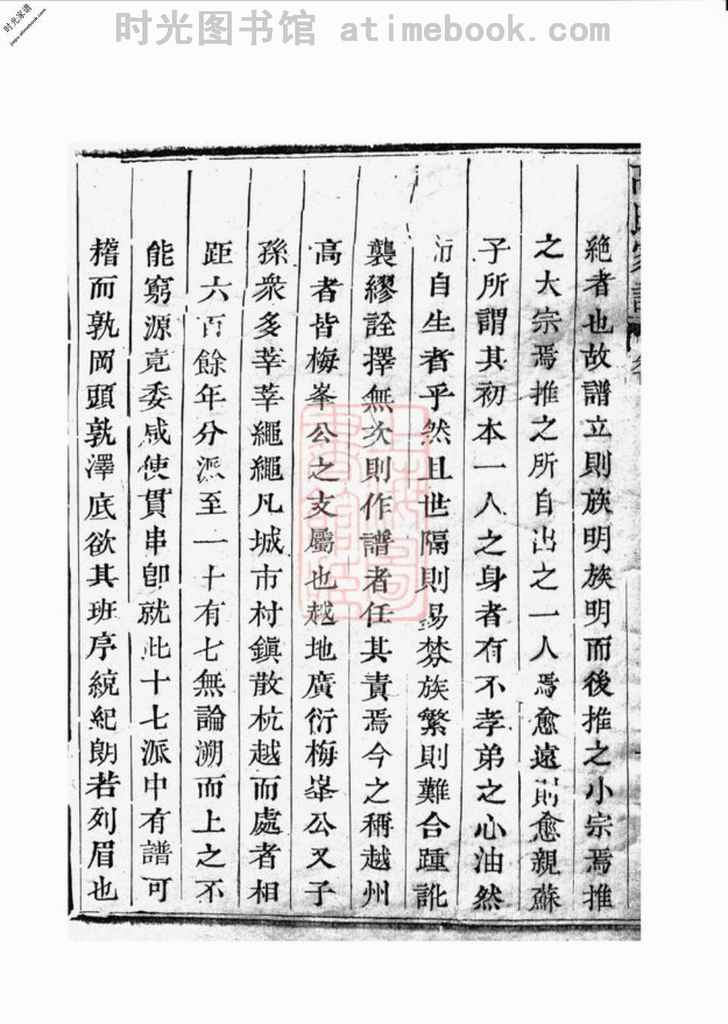 时光图书馆 atimebook.com
时光家谱
絶者也故譜立則族明族明而後推之小宗焉推
之大宗焉推之所自出之一人焉愈遠則愈親蘇
子所謂其初本一人之身者有不孝弟之心油然
而自生者乎然且世隔則易棼族繁則難合踵訛
襲繆詮擇無次則作譜者任其責焉今之稱越州
高者皆梅峯公之支屬也越地廣衍梅峯公又子
孫衆多莘莘繩繩凡城市村鎮散杭越而處者相
距六百餘年分派至一十有七無論溯而上之不
能窮源竟委咸使貫串卽就此十七派中有譜可
稽而孰岡頭孰澤底欲其班序統紀朗若列眉也